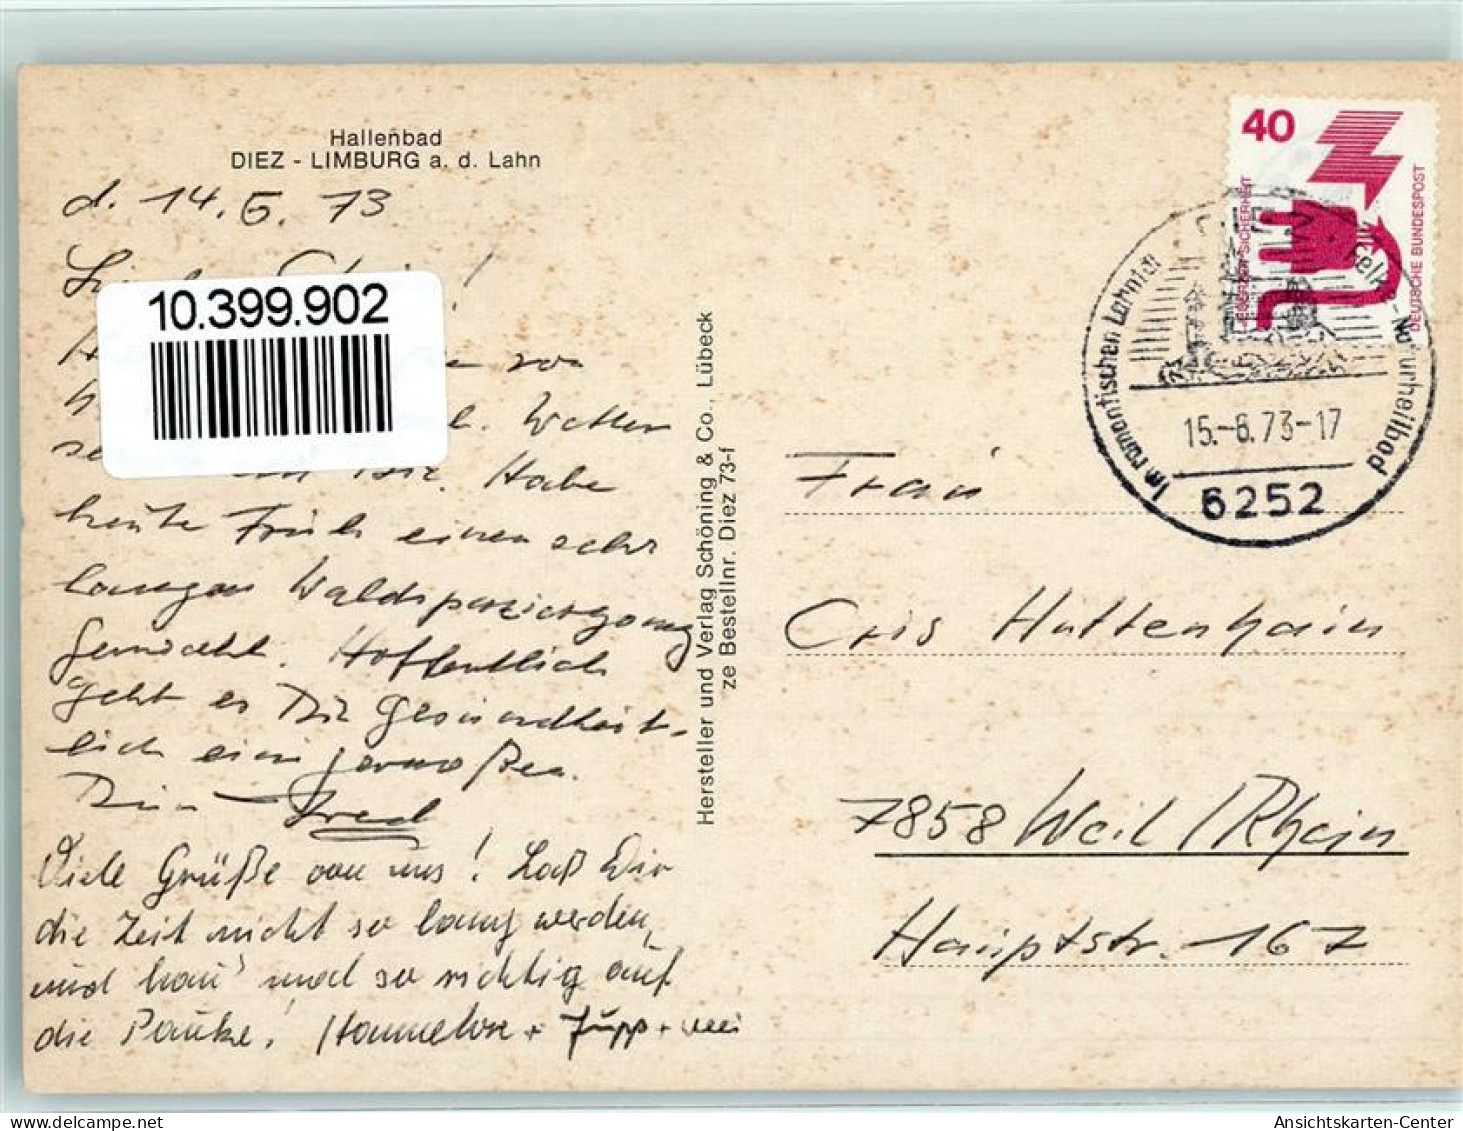 Hallenbad
DIEZ - LIMBURG a. d. Lahn
d. 14. 6. 73
10.399.902
von
Wetter
Dir. Habe
heute Früh einen sehr
langen Waldspaziergang
gemacht. Hoffentlich
geht es Dir gesundheit-
lich einigermaßen.
Dein Fred
Viele Grüße von uns! Laß Dir
die Zeit nicht so lang werden,
und hau' mal so richtig auf
die Pauke! Hannelore + Jupp +
Hersteller und Verlag Schöning & Co., Lübeck
ze Bestellnr. Diez 73-f
40
JEDERZEIT SICHERHEIT
DEUTSCHE BUNDESPOST
Im romantischen Lahntal
Felke-Kurheilbad
15.-6.73-17
6252
Frau
Cris Huttenhain
7858 Weil / Rhein
Hauptstr. 167
10.399.902
Ansichtskarten-Center